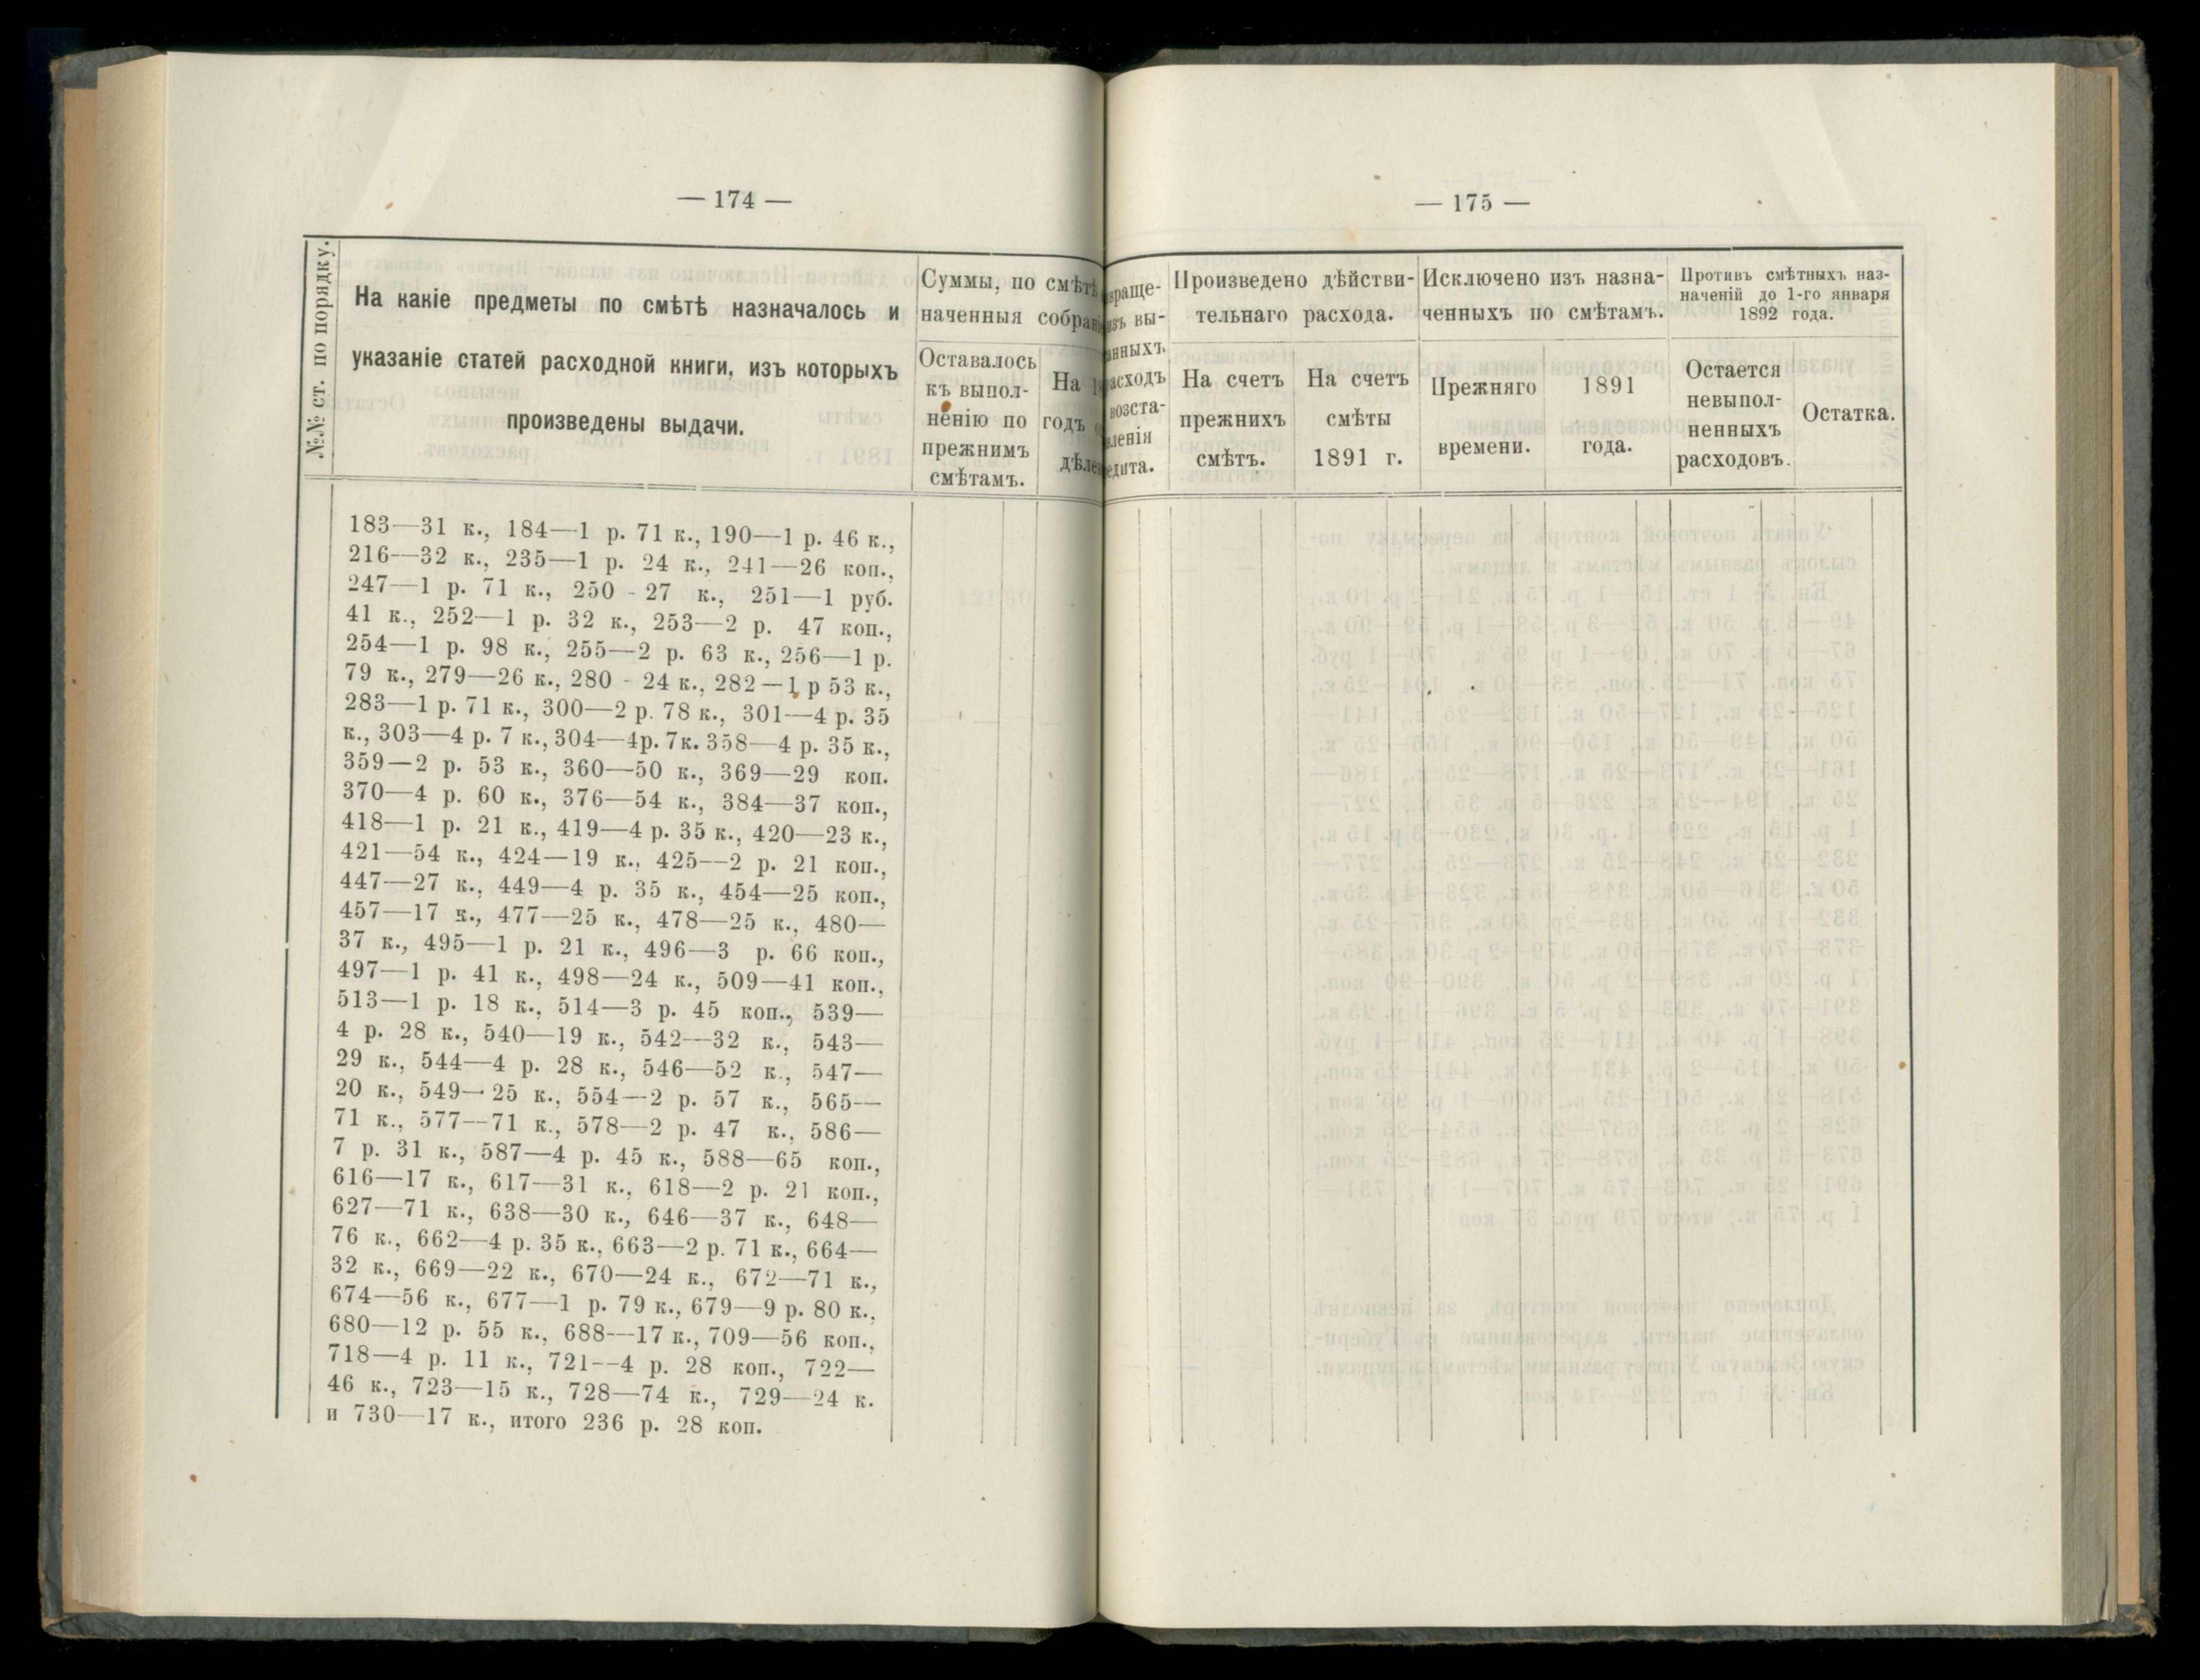 — 174 —
№№ ст. по порядку.
На какіе предметы по смѣтѣ назначалось и
указаніе статей расходной книги, изъ которыхъ
произведены выдачи.
Суммы, по смѣтѣ
наченныя собран
Оставалось
къ выпол-
ненію по
прежнимъ
смѣтамъ.
На
годъ
дѣле
183—31 к., 184—1 р. 71 к., 190—1 р. 46 к.,
216—32 к., 235—1 р. 24 к., 241—26 коп.,
247—1 р. 71 к., 250 - 27 к., 251—1 руб.
41 к., 252—1 р. 32 к., 253—2 р. 47 коп.,
254—1 р. 98 к., 255—2 р. 63 к., 256—1 р.
79 к., 279—26 к., 280 - 24 к., 282—1 р 53 к.,
283—1 р. 71 к., 300—2 р. 78 к., 301—4 р. 35
к., 303—4 р. 7 к., 304—4р. 7к. 358—4 р. 35 к.,
359—2 р. 53 к., 360—50 к., 369—29 коп.
370—4 р. 60 к., 376—54 к., 384—37 коп.,
418—1 р. 21 к., 419—4 р. 35 к., 420—23 к.,
421—54 к., 424—19 к., 425—2 р. 21 коп.,
447—27 к., 449—4 р. 35 к., 454—25 коп.,
457—17 к., 477—25 к., 478—25 к., 480—
37 к., 495—1 р. 21 к., 496—3 р. 66 коп.,
497—1 р. 41 к., 498—24 к., 509—41 коп.,
513—1 р. 18 к., 514—3 р. 45 коп., 539—
4 р. 28 к., 540—19 к., 542—32 к., 543—
29 к., 544—4 р. 28 к., 546—52 к., 547—
20 к., 549—25 к., 554—2 р. 57 к., 565—
71 к., 577—71 к., 578—2 р. 47 к., 586—
7 р. 31 к., 587—4 р. 45 к., 588—65 коп.,
616—17 к., 617—31 к., 618—2 р. 21 коп.,
627—71 к., 638—30 к., 646—37 к., 648—
76 к., 662—4 р. 35 к., 663—2 р. 71 к., 664—
32 к., 669—22 к., 670—24 к., 672—71 к.,
674—56 к., 677—1 р. 79 к., 679—9 р. 80 к.,
680—12 р. 55 к., 688—17 к., 709—56 коп.,
718—4 р. 11 к., 721—4 р. 28 коп., 722—
46 к., 723—15 к., 728—74 к., 729—24 к.
и 730—17 к., итого 236 р. 28 коп.
— 175 —
враще-
изъ вы-
анныхъ
асходъ
возста-
вленія
едита.
Произведено дѣйстви-
тельнаго расхода.
На счетъ
прежнихъ
смѣтъ.
На счетъ
смѣты
1891 г.
Исключено изъ назна-
ченныхъ по смѣтамъ.
Прежняго
времени.
1891
года.
Противъ смѣтныхъ наз-
наченій до 1-го января
1892 года.
Остается
невыпол-
ненныхъ
расходовъ.
Остатка.